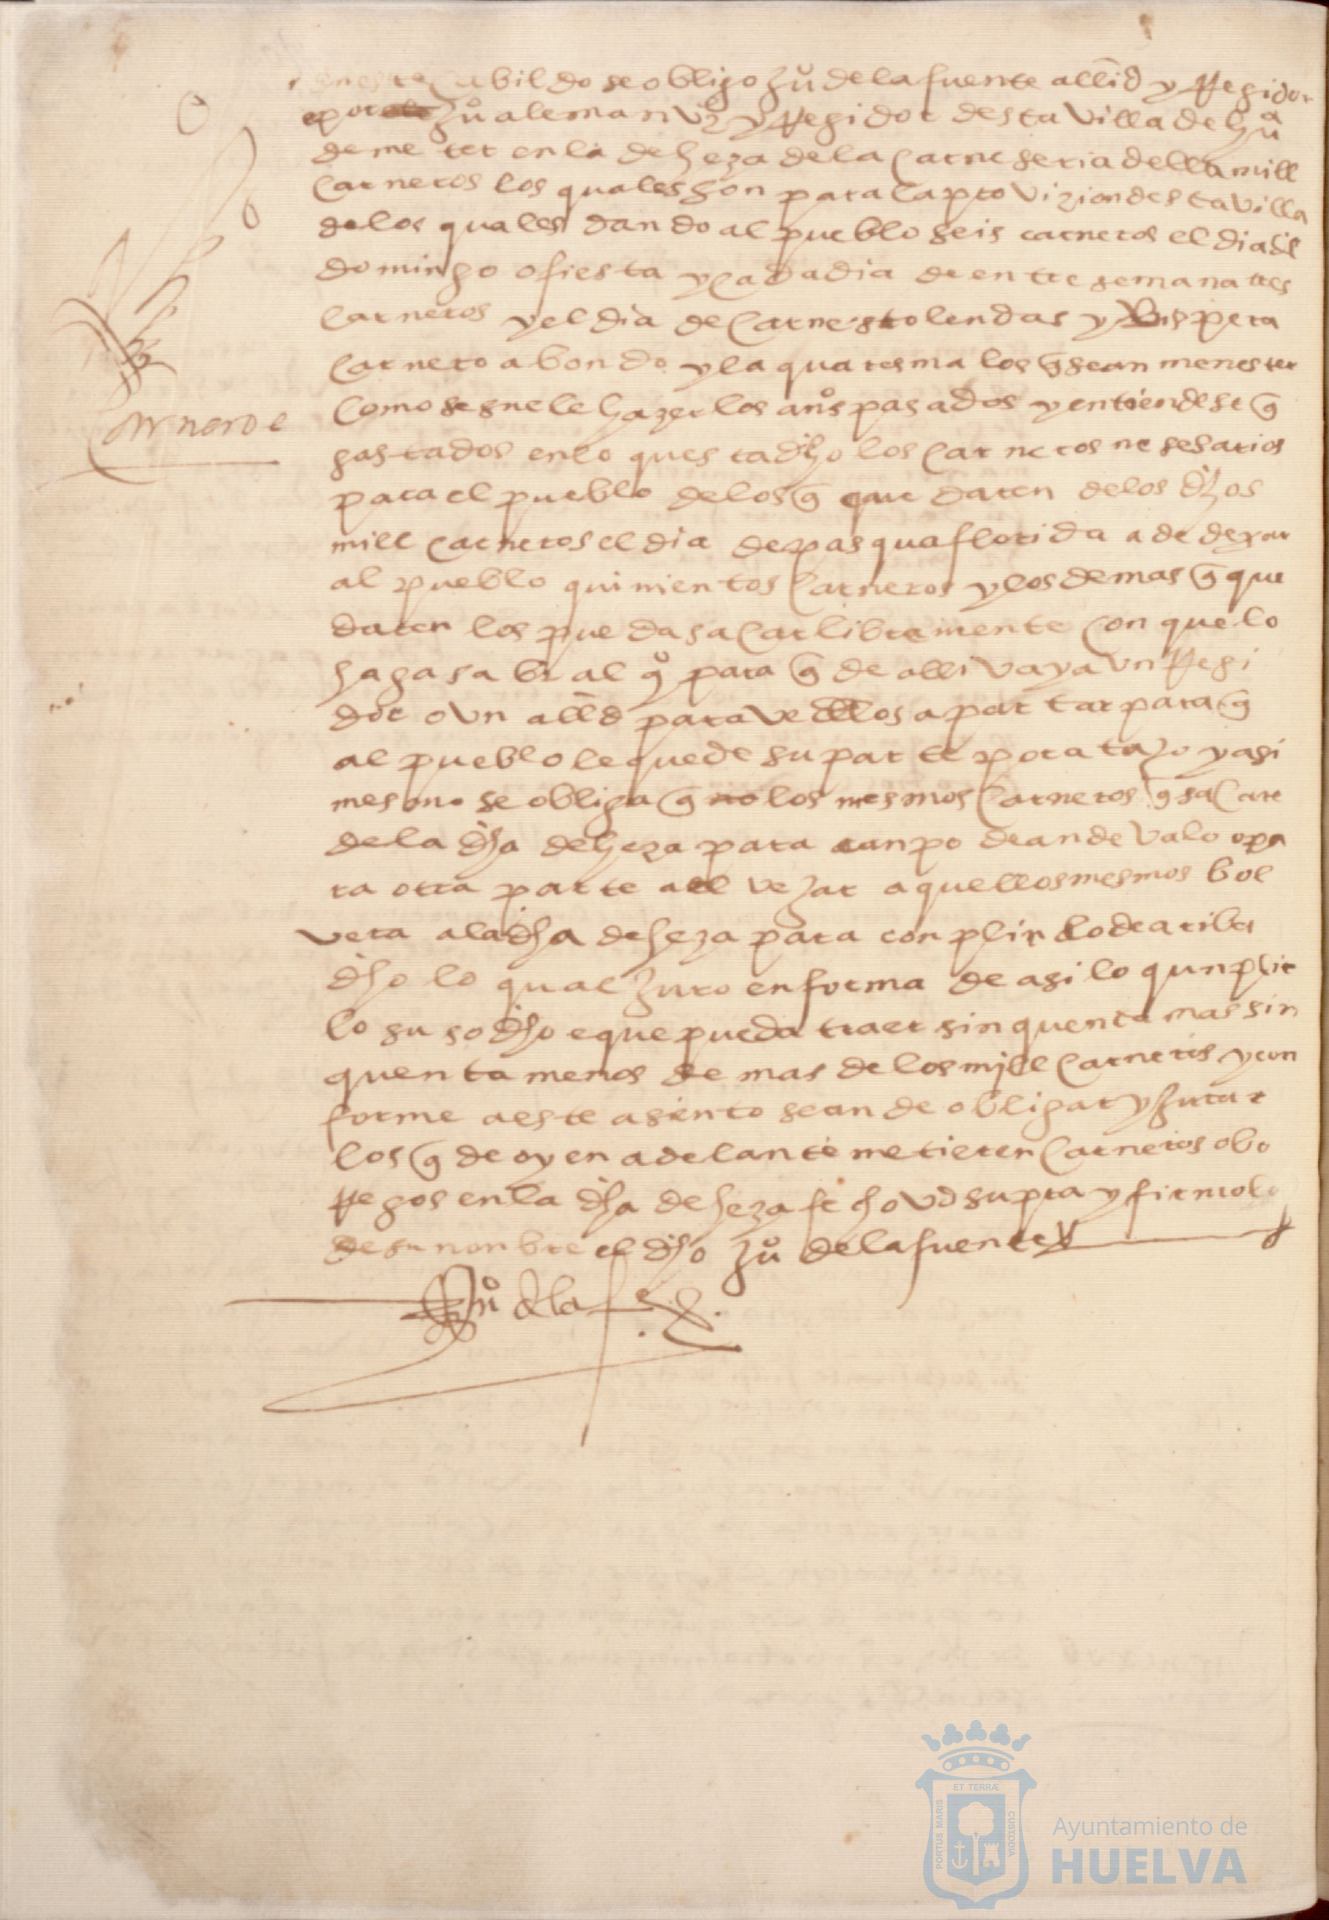 en este cabildo se obligo Juº de la fuente allde y Regidor
e por Juº aleman vº y Regidor desta villa de hua
de meter en la deheza de la carneseria della mill
carneros los quales son para la provizion desta villa
de los quales dando al pueblo seis carneros el dia del
domingo o fiesta y cada dia de entre semana tres
carneros y el dia de carnestolendas y bispera
carnero abondo y la quaresma los q sean menester
como se suele hazer los años pasados y entiendese q
gastados en lo questa dho los carneros nesesarios
para el pueblo de los q quedaren de los dhos
mill carneros el dia de pasqua florida a de dexar
al pueblo quinientos carneros y los demas q que
daren los pueda sacar libremente con que lo
haga saber al qº para q de alli vaya un Regi
dor o un allde para vellos apartar para q
al pueblo le quede su parte por atajo y asi
mesmo se obliga q los mesmos carneros q sacare
de la dha deheza para canpo de andevalo o pa
ra otra parte a ervejar aquellos mesmos bol
vera a la dha deheza para conplir lo de arriba
dho lo qual juro en forma de asi lo qunplir
lo susodho e que pueda traer sinquenta mas sin
quenta menos de mas de los mill carneros y con
forme a este asiento sean de obligar y jurar
los q de oy en adelante metieren carneros o bo
Regos en la dha deheza fecho ud supra y firmolo
de su nonbre el dho Juº de la fuente
Juº de la fe
carneros
Ayuntamiento de
HUELVA
PORTUS MARIS
ET TERRÆ
CUSTODIA